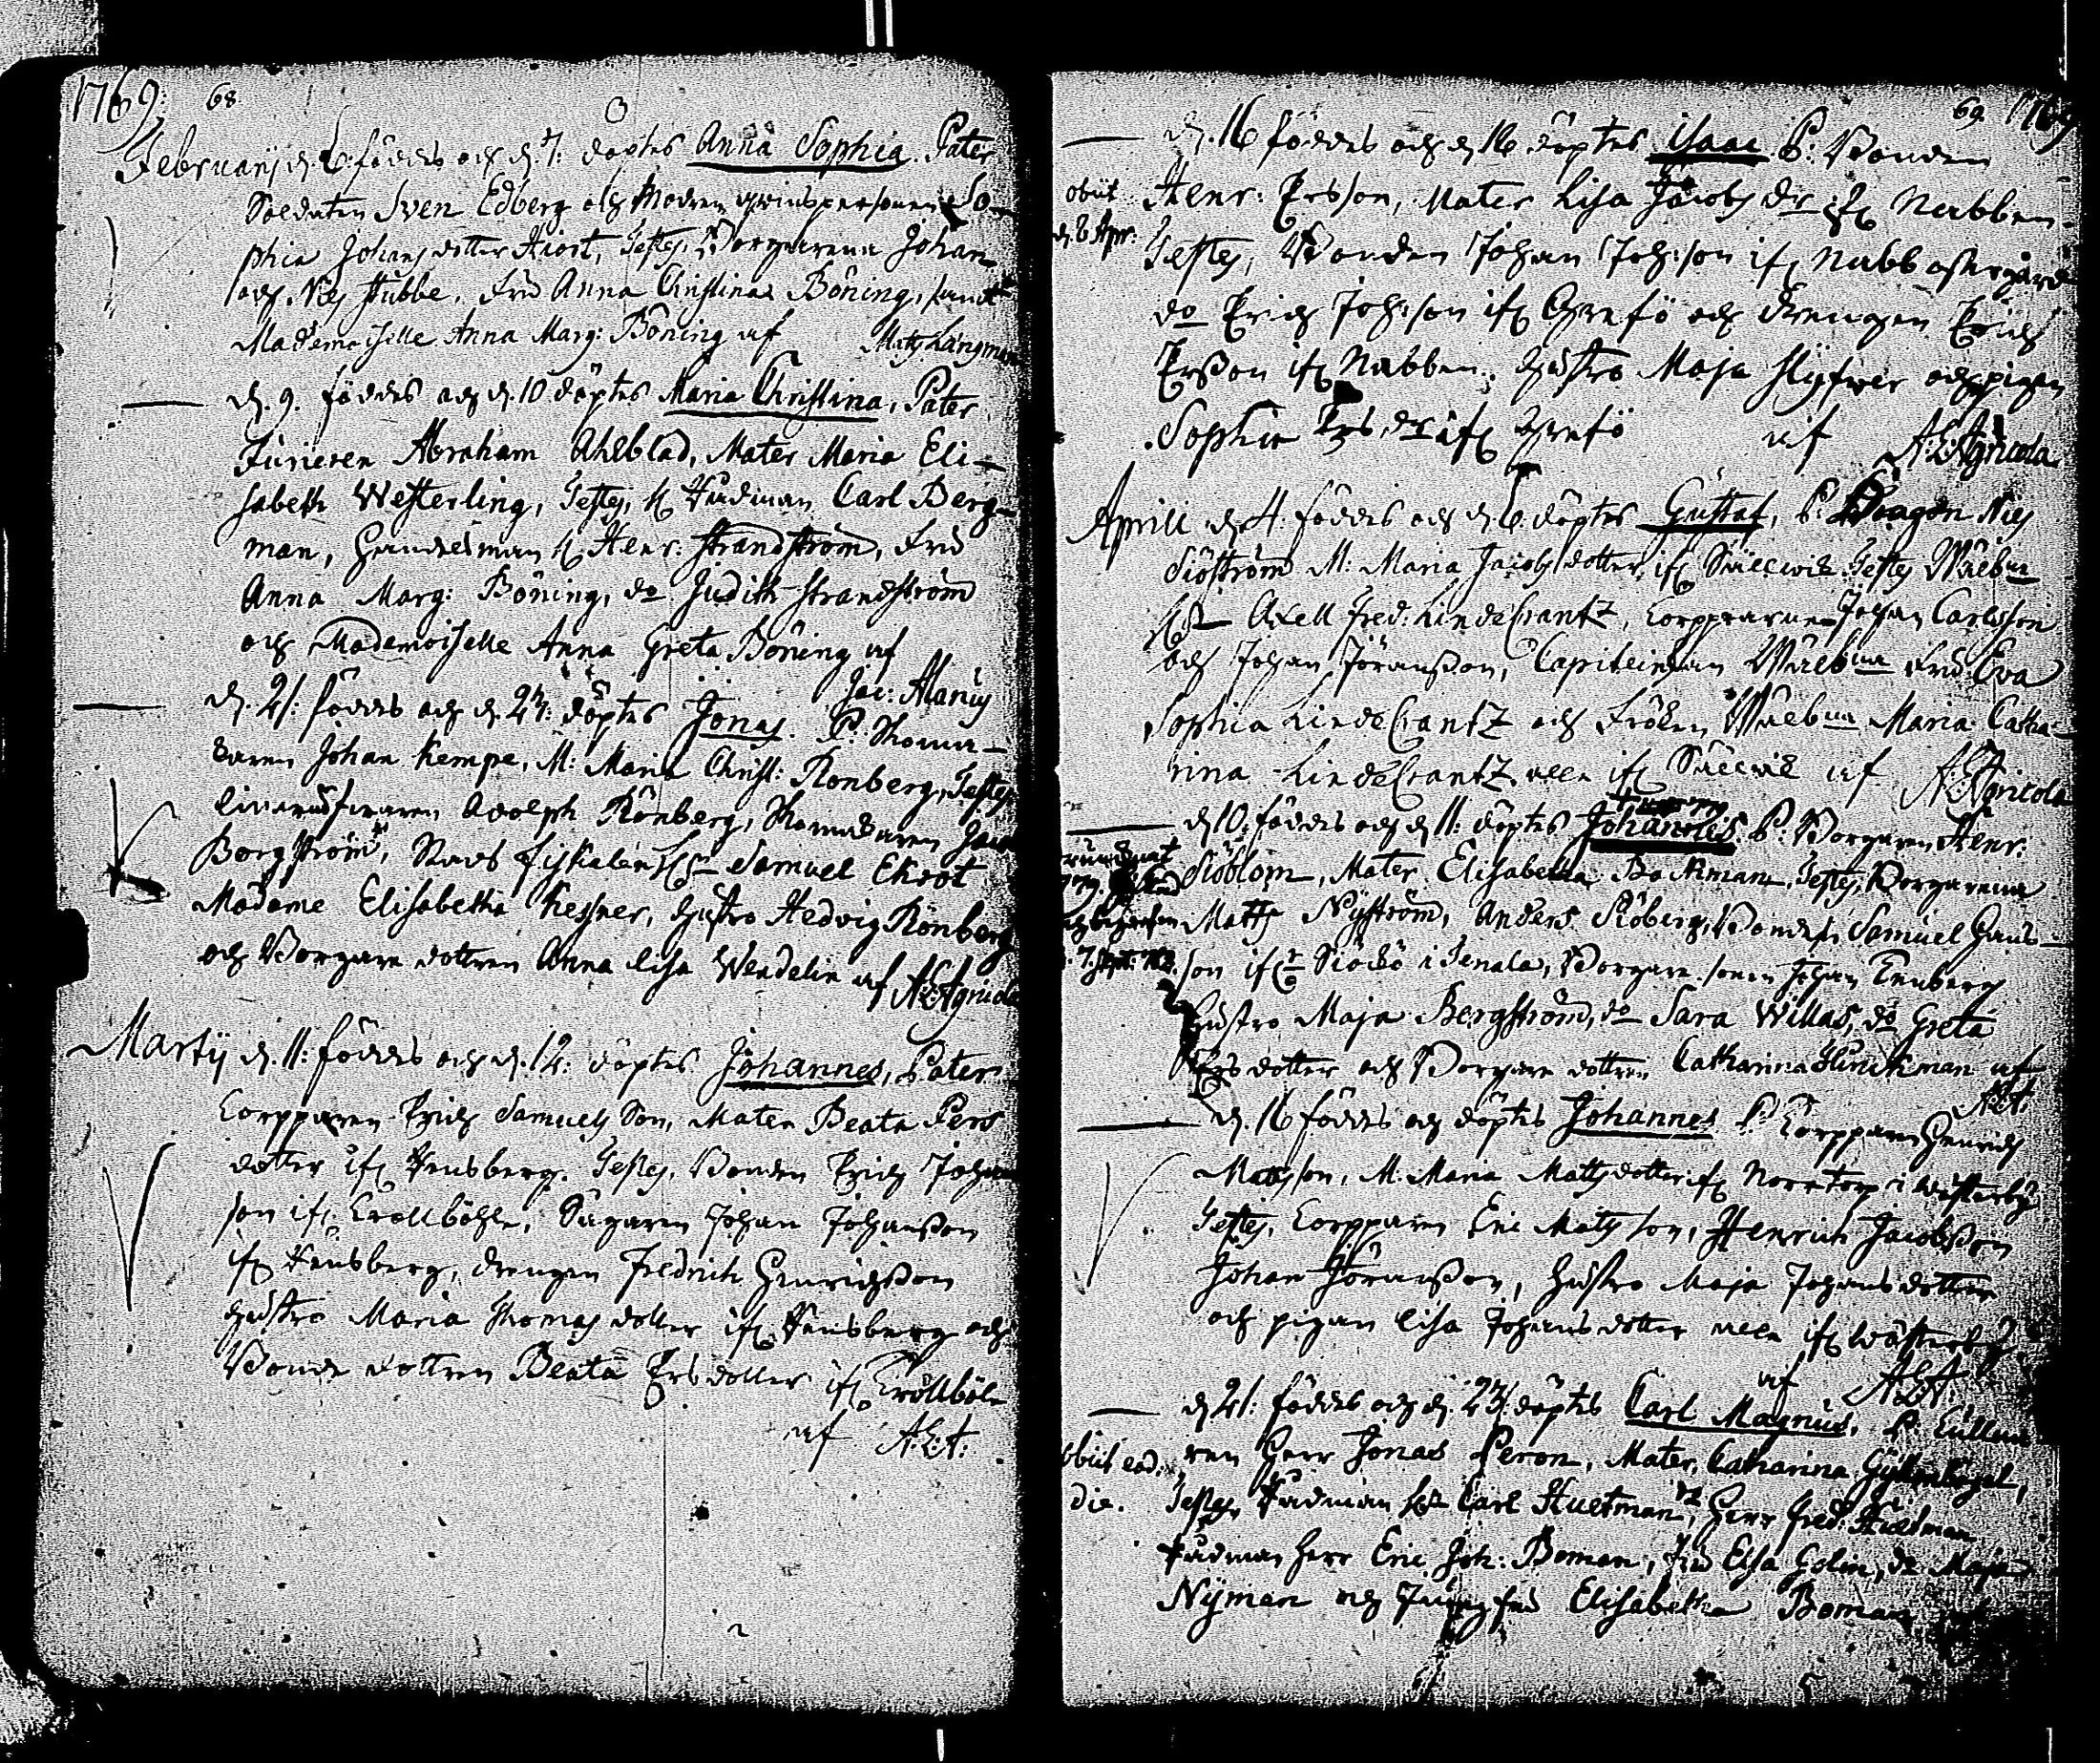 1769. 68.
Februarij d. 6. föddes och d. 7. döptes Anna Sophia. Pater
Soldaten Sven Edberg och Modren qvinspersonen So-
phia Johans dotter Hiort, Testes, Borgarena Johan
och Nils Stubbe, Fru Anna Christina Böning, samt
Mademoiselle Anna Marg: Böning af Matts Långman
d. 9. föddes och d. 10 döptes Maria Christina, Pater
Furieren Abraham Ahlblad, Mater Maria Eli-
sabeth Westerling, Testes, Rådman Carl Berg-
man, Handelsman Henr: Strandström, Fru
Anna Marg: Böning, do Judith Strandström
och Mademoiselle Anna Greta Böning af
Jac: Alanus
d. 21. föddes och d. 24. döptes Jonas. P. Skoma-
karen Johan Kempe, M: Maria Christ: Rönberg, Testes
Adolph Rönberg, Skomakaren
Borgström, Stads Fiskalen Samuel Ekrot
Madame Elisabetha Kessner, hustro Hedvig Rönberg
och Borgare dottren Anna Lisa Wendelin af A:L:Agricola
Martij d. 11. föddes och d. 12. döptes Johannes, Pater
Torpparen Erich Samuels Son, Mater Beata Pers
dotter ifr. Ramsberg. Testes, Bonden Erich Johan
son ifr. Trollböhle, Sågaren Johan Johansson
ifr. Ramsberg, drengen Fredrich Henrichsson
hustro Maria Thomas dotter ifr. Ramsberg och
Bonde dottren Beata Ers dotter ifr. Trollböle
af A:L:A:
69. 1769
d. 16 föddes och d. 16 döptes Isaac P: Bonden
obiit Henr: Ersson, Mater Lisa Jacobs dr ifr. Nabben
d. 8 Apr: Testes, Bonden Johan Joh:son ifr. Nabb ostergård
do Erich Joh:son ifr. och drengen Erich
Ersson ifr. Nabben, hustro Maja och pigan
Sophia Ers dr ifr. af A:L:Agricola
Aprill d. 4. föddes och d. 6. döptes Gustaf, P: Dragon Nils
Siöström M: Maria Jacobs dotter, ifr. Testes Wälb.
Axell Fred: LindeCrantz, Torpparena Johan Carlsson
och Johan Jöransson, Capiteinskan Wälb. Fru Eva
Sophia LindeCrantz och Fröken Wälb. Maria Catha-
rina LindeCrantz alla ifr. af A:L:Agricola
d. 10. föddes och d. 11. döptes Johannes P: Borgaren Henr:
Siöblom, Mater Elisabetha Backman, Testes, Borgarena
Matts Nyström, Anders Siöberg, Bonden Samuel Hans-
son ifr. i Tenala, Borgare sonen Johan Enberg
hustro Maja Bergström, do Sara Willas, do Greta
Ers dotter och Borgare dottren Catharina af
A:L:A:
d. 16 föddes och döptes Johannes P. Torpparen Henrich
Mattsson, M. Maria Matts dotter ifr. Norrtorp i Wästerby
Testes, Torpparen Eric Matts son, Henrich Jacobsson
Johan Jöransson, hustro Maja Johans dotter
och pigan Lisa Johans dotter alla ifr. Wästerby
af A:L:A:
d. 21. föddes och d. 23. döptes Carl Magnus. P.
obiit eod: Herr Jonas Peron, Mater, Catharina
die. Testes, Rådman Carl Hultman, Herr Fred: Hultman
Rådman Herr Eric Joh: Boman, Fru Elsa Golin, do Maja
Nyman och Jungfru Elisabetha Boman